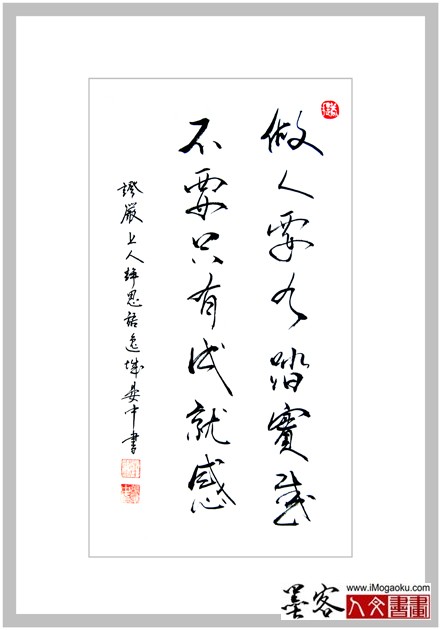 做人要有踏實感
不要只有成就感
證嚴上人靜思語逸城晏中書
墨客
www.iMogaoku.com
人文書畫